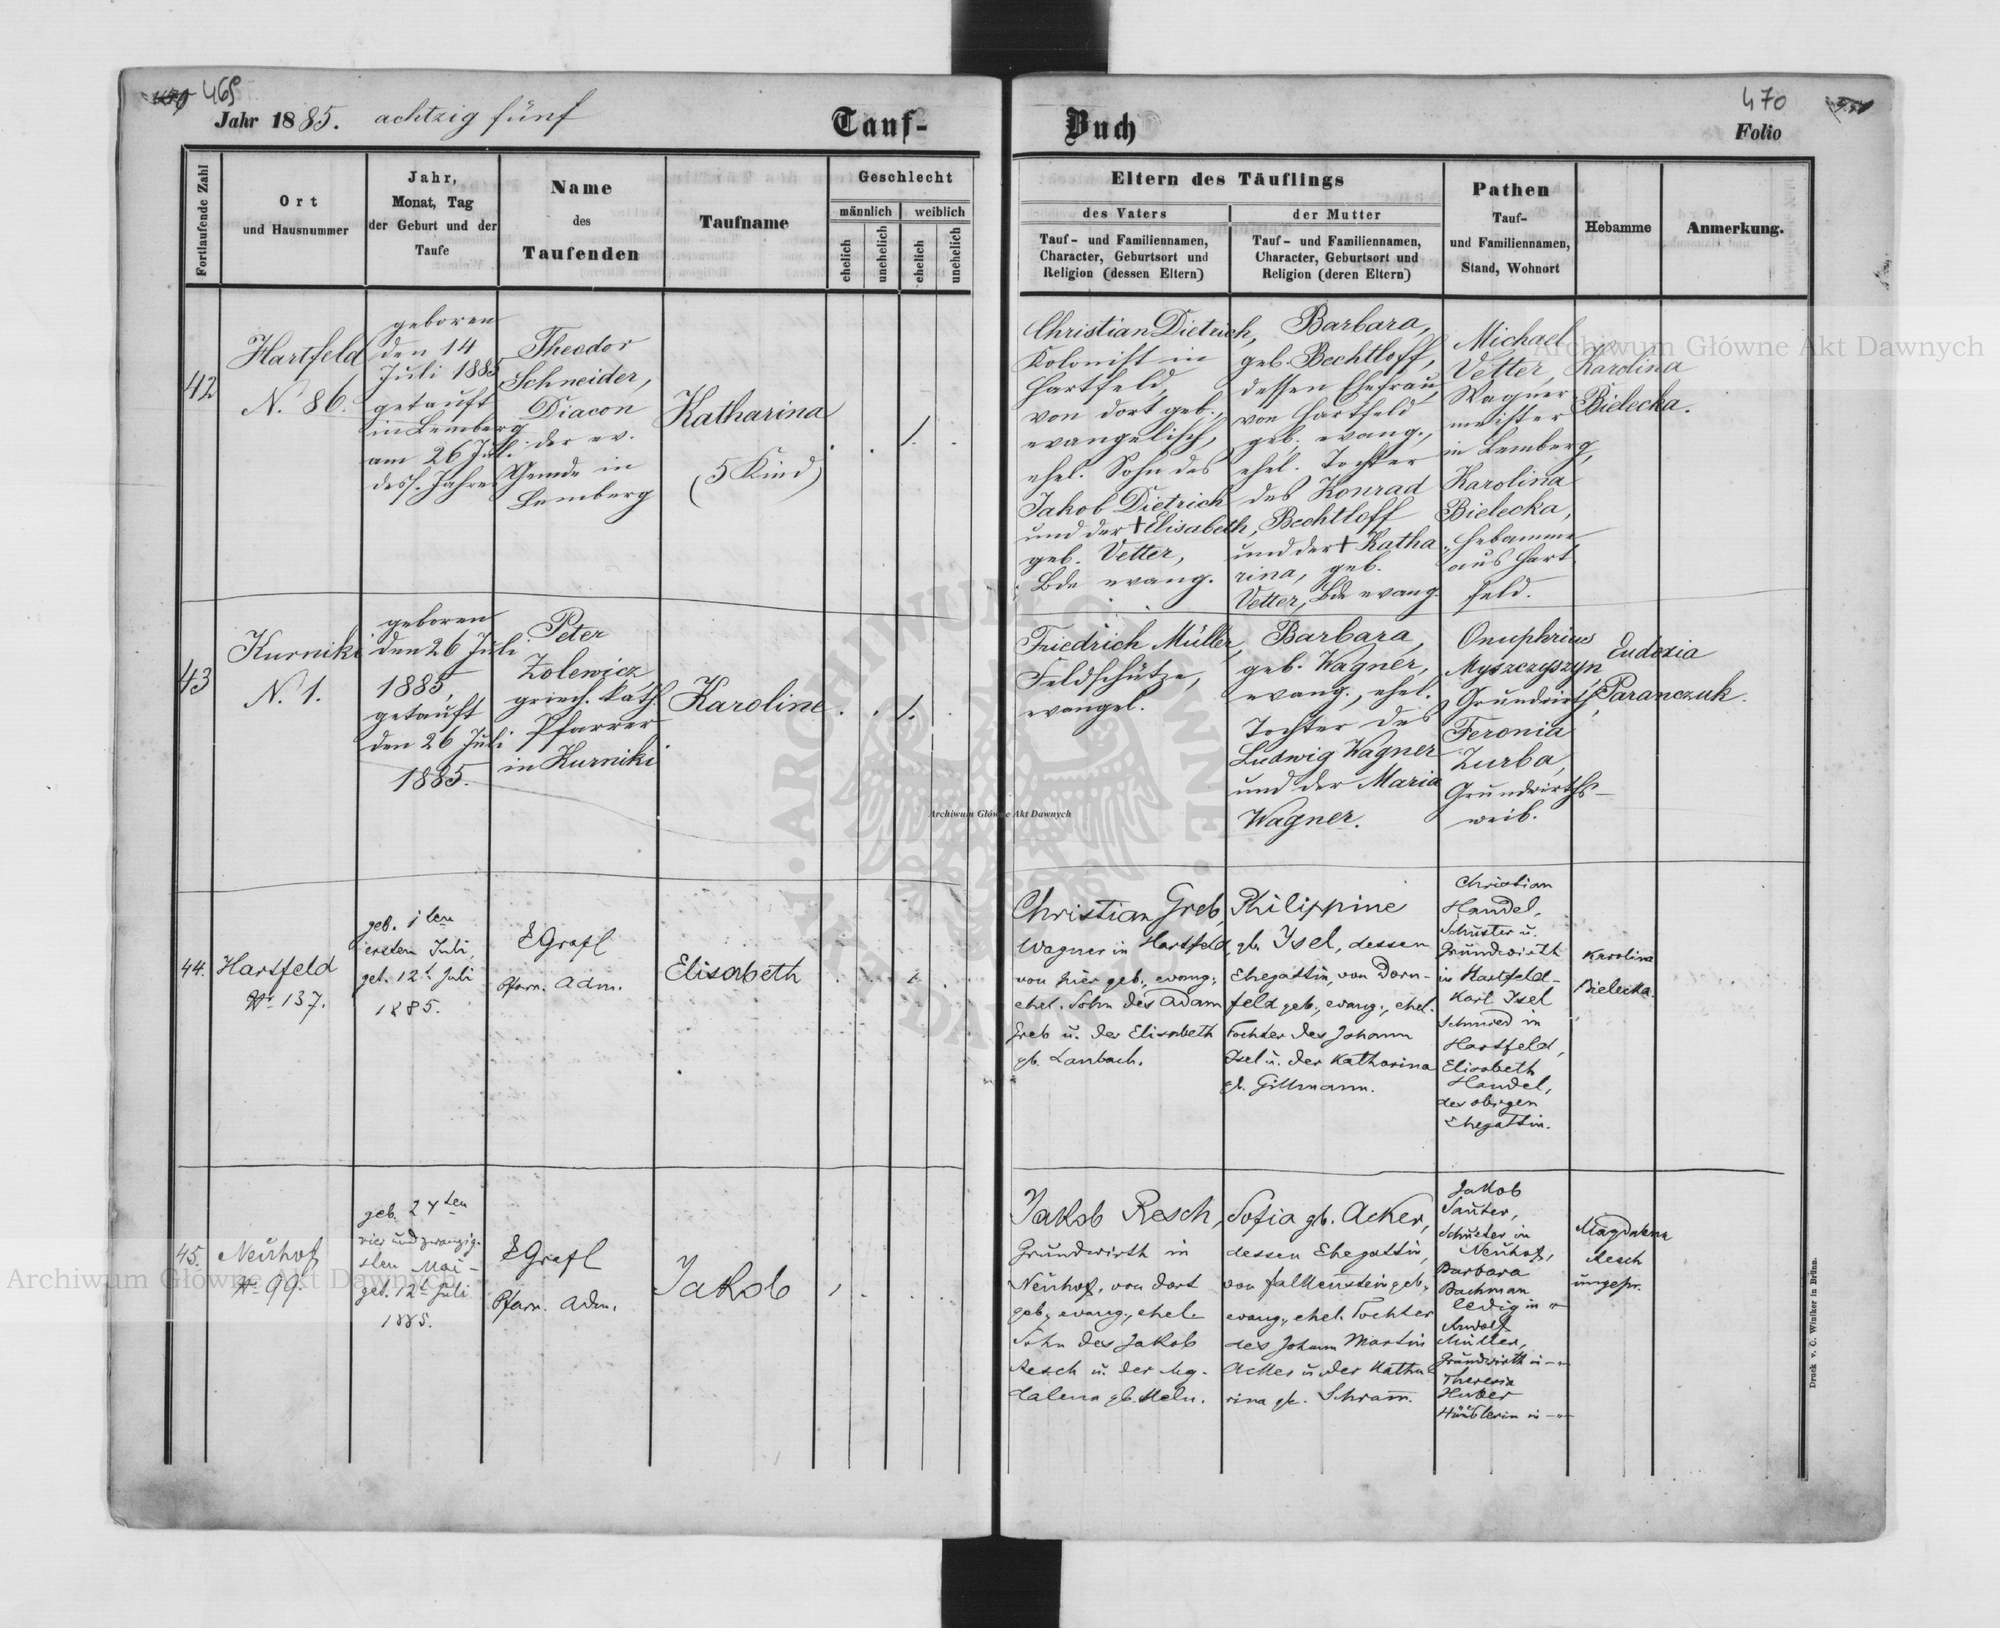 469
Jahr 1885. achtzig fünf
Tauf-
Buch
470
Folio
Fortlaufende Zahl
Ort
und Hausnummer
Jahr,
Monat, Tag
der Geburt und der
Taufe
Name
des
Taufenden
Taufname
Geschlecht
männlich
weiblich
ehelich
unehelich
ehelich
unehelich
Eltern des Täuflings
des Vaters
Tauf- und Familiennamen,
Character, Geburtsort und
Religion (dessen Eltern)
der Mutter
Tauf- und Familiennamen,
Character, Geburtsort und
Religion (deren Eltern)
Pathen
Tauf-
und Familiennamen,
Stand, Wohnort
Hebamme
Anmerkung.
42
Hartfeld
N. 86.
geboren
den 14
Juli 1885
getauft
in Lemberg
am 26 Juli
dess. Jahres
Theodor
Schneider,
Diacon
der ev.
Gemde in
Lemberg
Katharina
(5 Kind)
1.
Christian Dietrich,
Kolonist in
Hartfeld,
von dort geb.,
evangelisch,
ehel. Sohn des
Jakob Dietrich
und der † Elisabeth,
geb. Vetter,
Bde evang.
Barbara,
geb. Bechtloff,
dessen Ehefrau,
von Hartfeld
geb. evang.,
ehel. Tochter
des Konrad
Bechtloff
und der † Katha
rina, geb.
Vetter, Bde evang
Michael
Vetter,
Wagner
meister
in Lemberg,
Karolina
Bielecka,
Hebamme
aus Hart
feld.
Karolina
Bielecka.
43
Kurniki
N. 1.
geboren
den 26 Juli
1885,
getauft
den 26 Juli
1885.
Peter
Zolewicz,
griech. kath.
Pfarrer
in Kurniki
Karoline
1.
Friedrich Müller,
Feldschütze,
evangel.
Barbara,
geb. Wagner,
evang., ehel.
Tochter des
Ludwig Wagner
und der Maria
Wagner.
Onuphrius
Myszczyszyn,
Grundwirth,
Feronia
Zurba,
Grundwirths-
weib.
Eudoxia
Paranczuk.
44.
Hartfeld
Nr 137.
geb. 1ten
ersten Juli,
get. 12t Juli
1885.
EGrafl
Pfarr. Adm.
Elisabeth
1
Christian Greb,
Wagner in Hartfeld,
von hier geb., evang.,
ehel. Sohn des Adam
Greb u. der Elisabeth
gb. Lanbach.
Philippine
gb. Isel, dessen
Ehegattin, von Dorn-
feld geb., evang., ehel.
Tochter des Johann
Isel u. der Katharina
gb. Gillmann.
Christian
Handel,
Schuster u.
Grundwirth
in Hartfeld-
Karl Isel
Schmied in
Hartfeld,
Elisabeth
Handel,
des obigen
Ehegattin.
Karolina
Bielecka.
45.
Neuhof
Nr 99.
geb. 24ten
vier und zwanzig-
sten Mai-
get. 12t Juli
1885.
EGrafl
Pfarr. Adm.
Jakob
1
Jakob Resch,
Grundwirth in
Neuhof, von dort
geb., evang., ehel.
Sohn des Jakob
Resch u. der Mag-
dalena gb. Meln.
Sofia gb. Acker,
dessen Ehegattin,
von Falkenstein geb.,
evang., ehel. Tochter
des Johann Martin
Acker u. der Katha
rina gb. Schram̅.
Jakob
Sauter,
Schuster in
Neuhof,
Barbara
Bachman
ledig in -"-
Müller,
Grundwirth in -"-
Theresia
Huber
Häuslerin in -"-
Magdalena
Resch
ungepr.
Druck v. C. Winiker in Brünn.
Archiwum Główne Akt Dawnych
Archiwum Główne Akt Dawnych
Archiwum Główne Akt Dawnych
ARCHIWUM GŁÓWNE AKT DAWNYCH